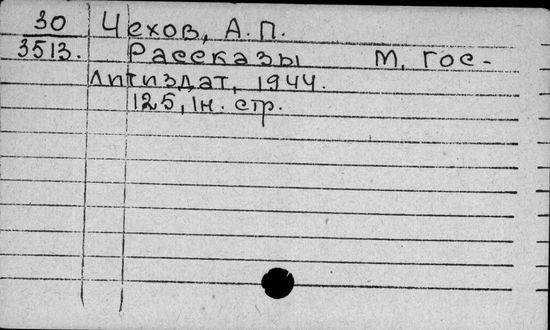 30 Чехов, А. П.
3513. Рассказы М, Гос-
литиздат, 1944.
125, 1н. стр.